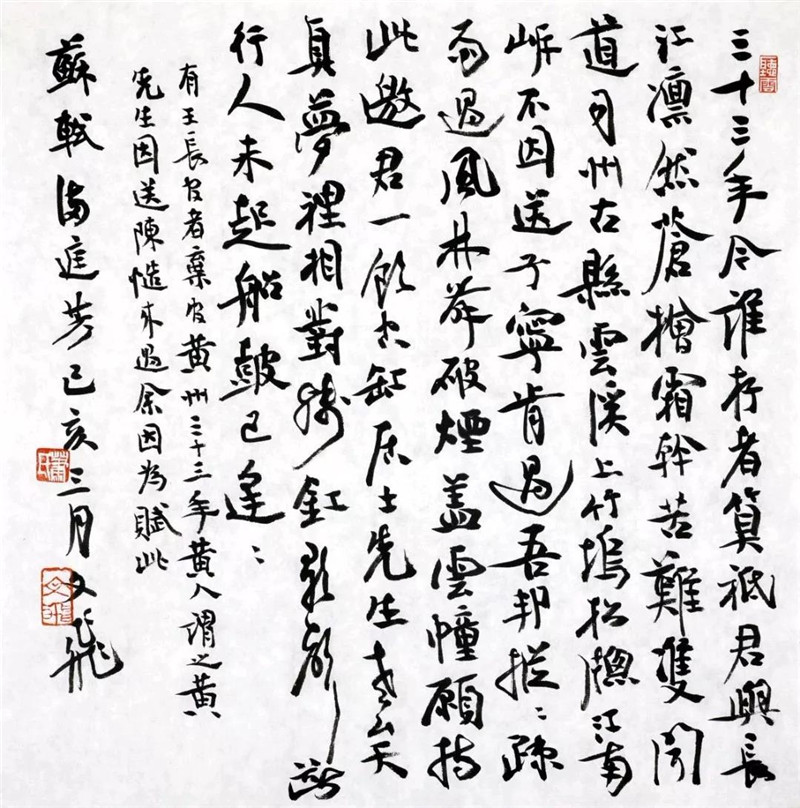 三十三年今誰存者算祇君與長
江凛然蒼檜霜幹苦難雙聞
道司州古縣雲溪上竹塢松牕江南
岸不因送子寧肯過吾邦摐〻疎
雨過風林舞破煙蓋雲幢願持
此邀君一飲空缸居士先生老矣
真夢裡相對殘釭歌聲斷
行人未起船鼓已逢〻
有王長官者棄官黃州三十三年黃人謂之黃
先生因送陳慥來過余因為賦此
蘇軾滿庭芳己亥三月文飛